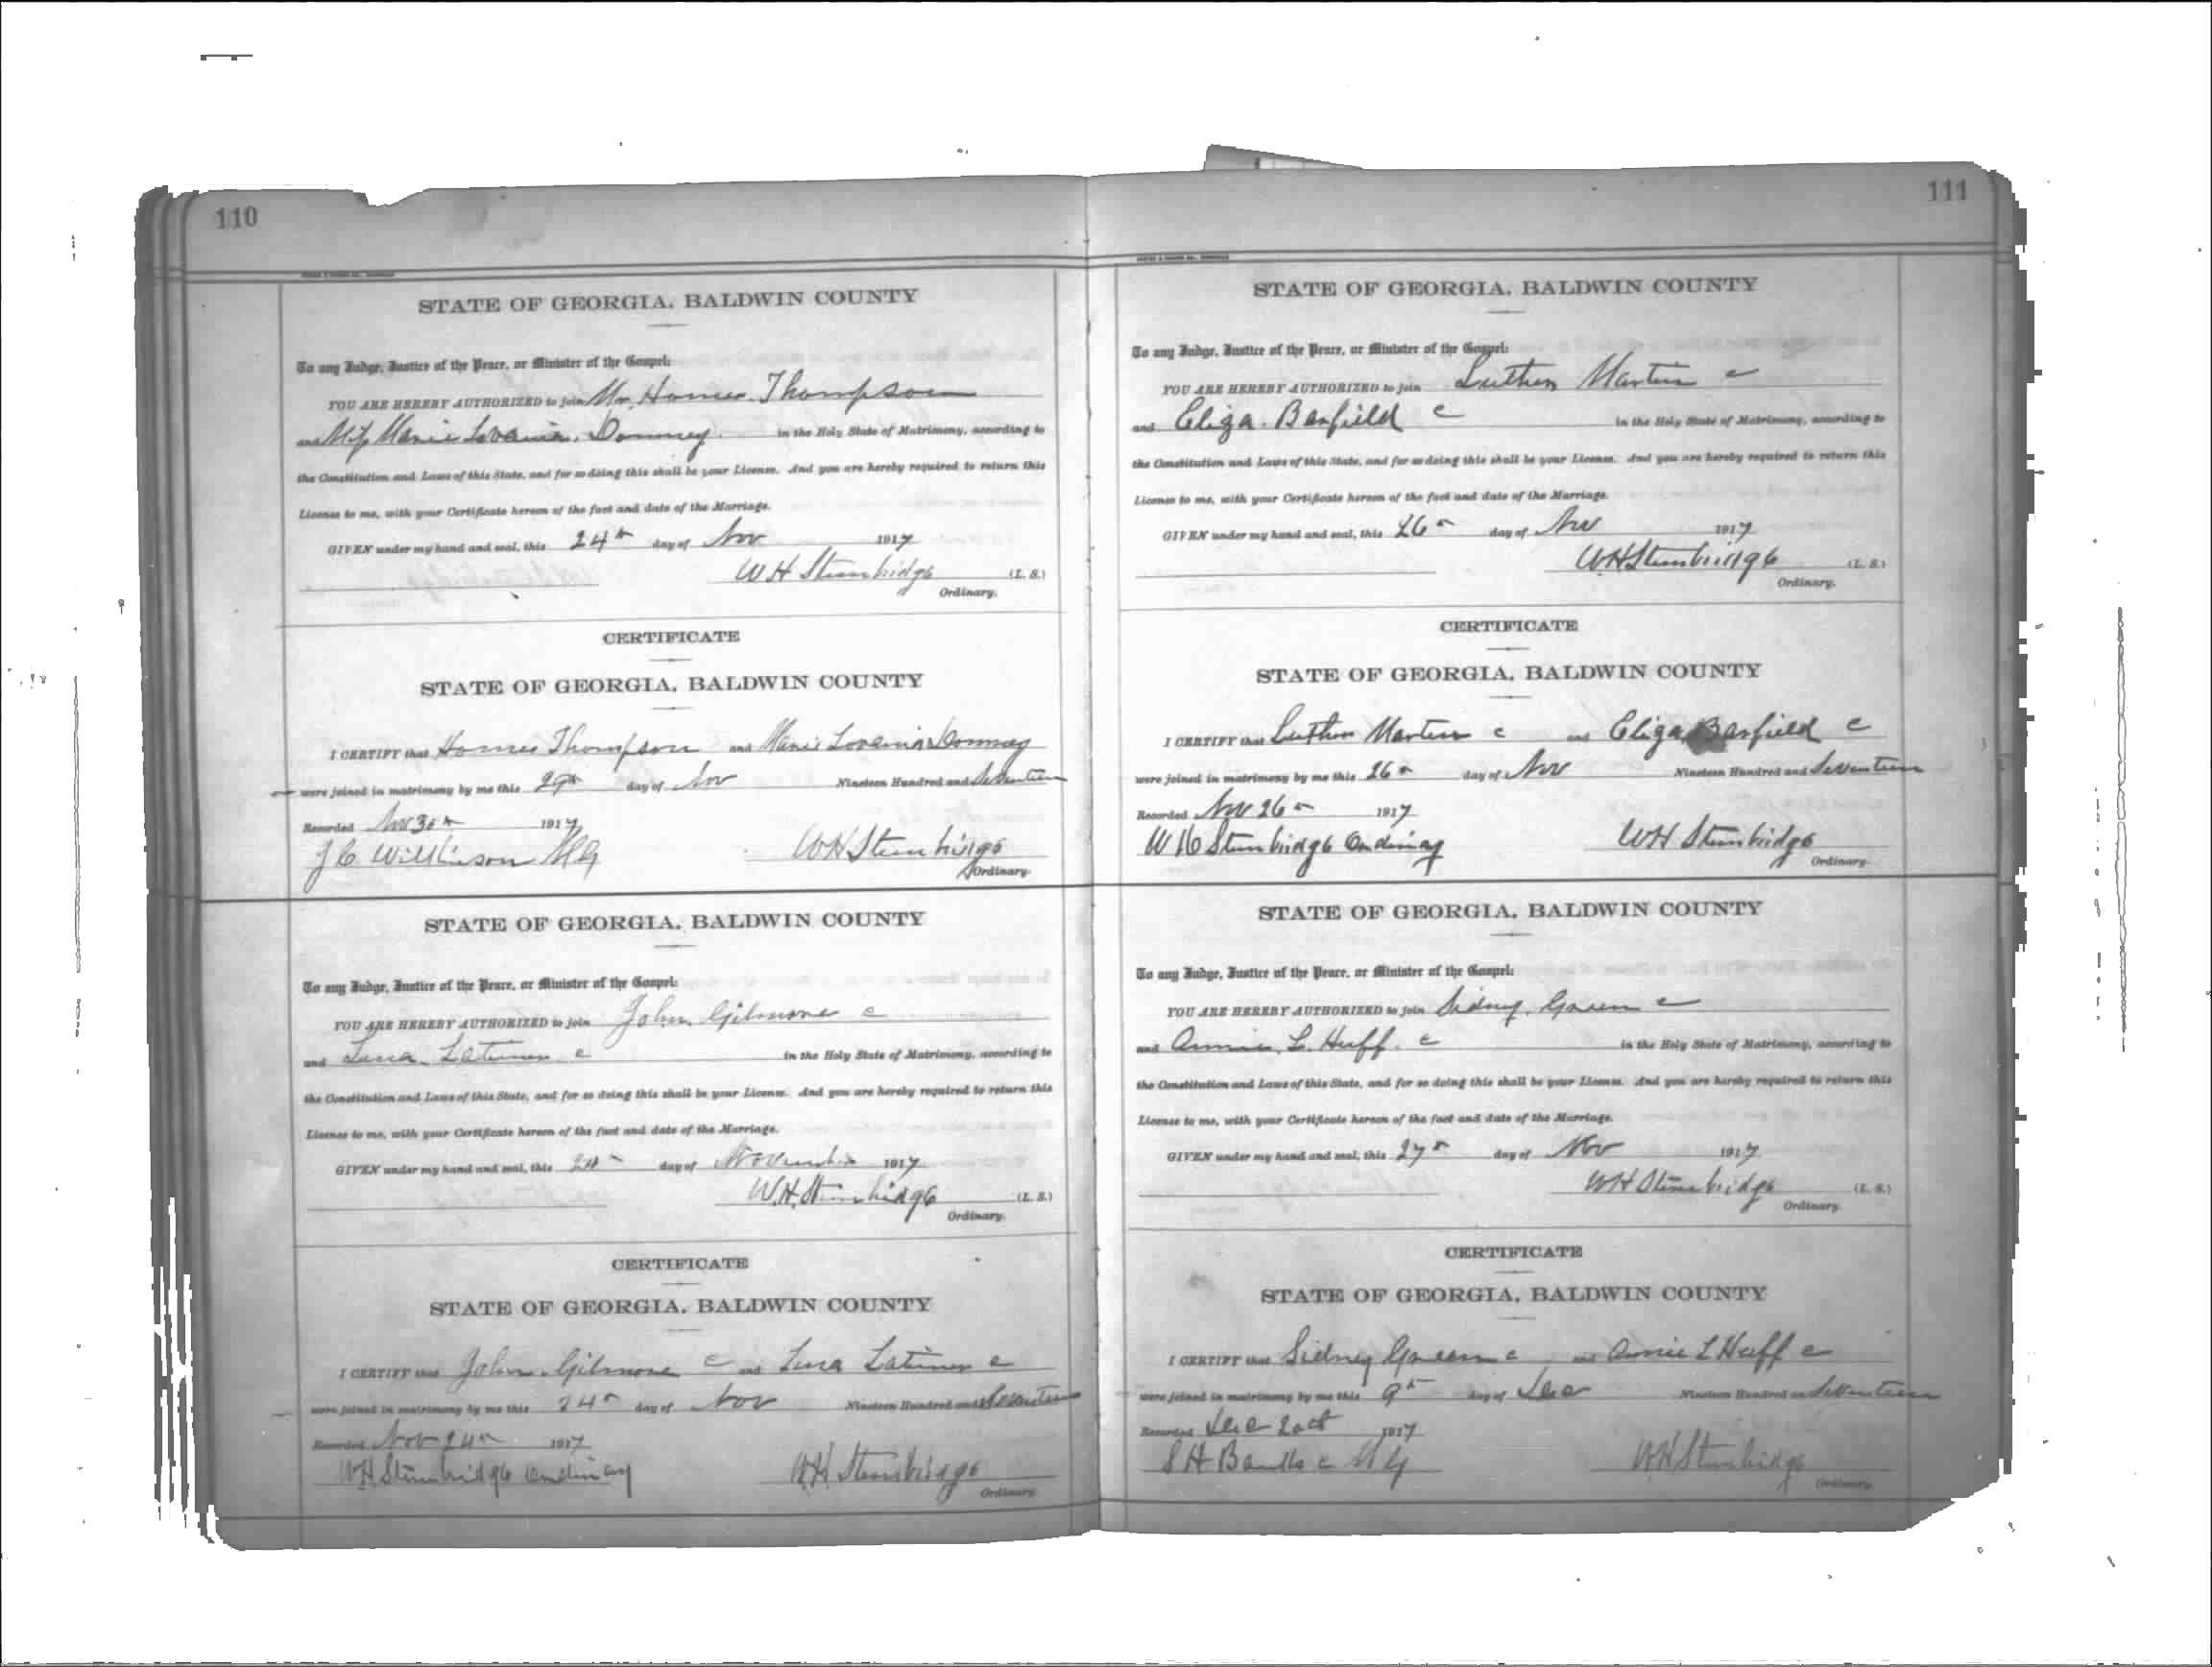 110
STATE OF GEORGIA, BALDWIN COUNTY
To any Judge, Justice of the Peace, or Minister of the Gospel:
YOU ARE HEREBY AUTHORIZED to join Mr. Homer Thompson
and Miss Marie Lovenia in the Holy State of Matrimony, according to
the Constitution and Laws of this State, and for so doing this shall be your License. And you are hereby required to return this
License to me, with your Certificate hereon of the fact and date of the Marriage.
GIVEN under my hand and seal, this 24th day of Nov 1917
W H Stembridge (L. S.)
Ordinary.
CERTIFICATE
STATE OF GEORGIA, BALDWIN COUNTY
I CERTIFY that Homer Thompson and Marie Lovenia
were joined in matrimony by me this 29th day of Nov Nineteen Hundred and Seventeen
Recorded Nov 30th 1917
J C Wilkinson M G W H Stembridge
Ordinary.
STATE OF GEORGIA, BALDWIN COUNTY
To any Judge, Justice of the Peace, or Minister of the Gospel:
YOU ARE HEREBY AUTHORIZED to join John Gilmore c
and Lena Latimer c in the Holy State of Matrimony, according to
the Constitution and Laws of this State, and for so doing this shall be your License. And you are hereby required to return this
License to me, with your Certificate hereon of the fact and date of the Marriage.
GIVEN under my hand and seal, this 24th day of November 1917
W.H. Stembridge (L. S.)
Ordinary.
CERTIFICATE
STATE OF GEORGIA, BALDWIN COUNTY
I CERTIFY that John Gilmore c and Lena Latimer c
were joined in matrimony by me this 24th day of Nov Nineteen Hundred and Seventeen
Recorded Nov 24th 1917
W H Stembridge Ordinary W H Stembridge
Ordinary.
111
STATE OF GEORGIA, BALDWIN COUNTY
To any Judge, Justice of the Peace, or Minister of the Gospel:
YOU ARE HEREBY AUTHORIZED to join Luther Martin c
and Eliza Barfield c in the Holy State of Matrimony, according to
the Constitution and Laws of this State, and for so doing this shall be your License. And you are hereby required to return this
License to me, with your Certificate hereon of the fact and date of the Marriage.
GIVEN under my hand and seal, this 26th day of Nov 1917
W H Stembridge (L. S.)
Ordinary.
CERTIFICATE
STATE OF GEORGIA, BALDWIN COUNTY
I CERTIFY that Luther Martin c and Eliza Barfield c
were joined in matrimony by me this 26th day of Nov Nineteen Hundred and Seventeen
Recorded Nov 26th 1917
W H Stembridge Ordinary W H Stembridge
Ordinary.
STATE OF GEORGIA, BALDWIN COUNTY
To any Judge, Justice of the Peace, or Minister of the Gospel:
YOU ARE HEREBY AUTHORIZED to join Sidney Green c
and Annie L. Huff c in the Holy State of Matrimony, according to
the Constitution and Laws of this State, and for so doing this shall be your License. And you are hereby required to return this
License to me, with your Certificate hereon of the fact and date of the Marriage.
GIVEN under my hand and seal, this 27th day of Nov 1917
W H Stembridge (L. S.)
Ordinary.
CERTIFICATE
STATE OF GEORGIA, BALDWIN COUNTY
I CERTIFY that Sidney Green c and Annie L Huff c
were joined in matrimony by me this 9th day of Dec Nineteen Hundred and Seventeen
Recorded Dec 1917
S H c M G W H Stembridge
Ordinary.